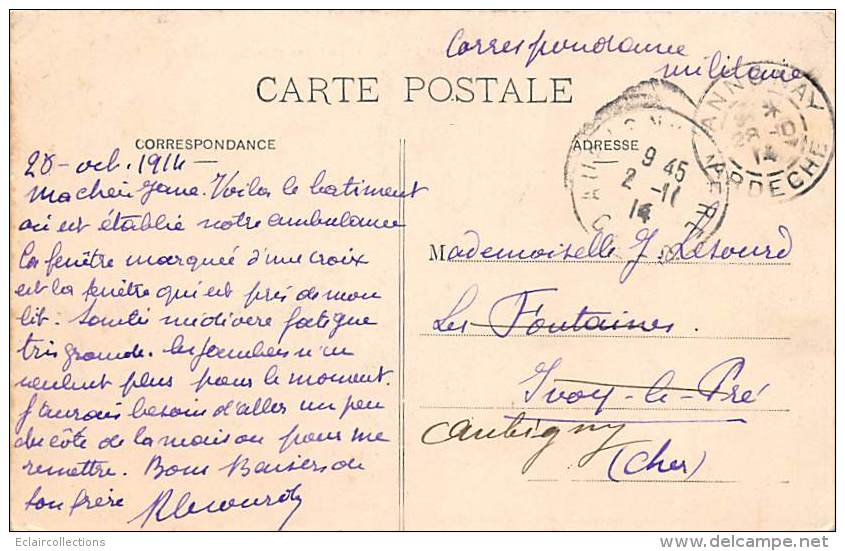 Correspondance
militaire
CARTE POSTALE
CORRESPONDANCE
ADRESSE
ANNONAY
ARDECHE
14
9 45
2 -11
14
28 - oct. 1914 -
Ma chère Jane. Voilà le batiment
où est établie notre ambulance
La fenêtre marquée d'une croix
est la fenêtre qui est près de mon
lit. Santé médiocre fatigue
très grande. les jambes n'en
veulent plus pour le moment.
J'aurais besoin d'aller un peu
du côté de la maison pour me
remettre. Bons Baisers de
ton frère
Mademoiselle J. Lesourd
Les Fontaines.
Ivoy-le-Pré
Aubigny
(Cher)
Eclaircollections
www.delcampe.net